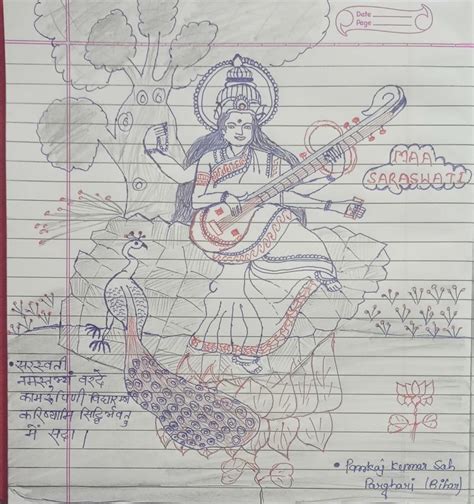 Date
Page
MAA
SARASWATI
• सरस्वती
नमस्तुभ्यं वरदे
कामरूपिणी विद्यारम्भ
करिष्यामि सिद्धिर्भवतु
में सदा।
• Pankaj Kumar Sah
Parghari (Bihar)